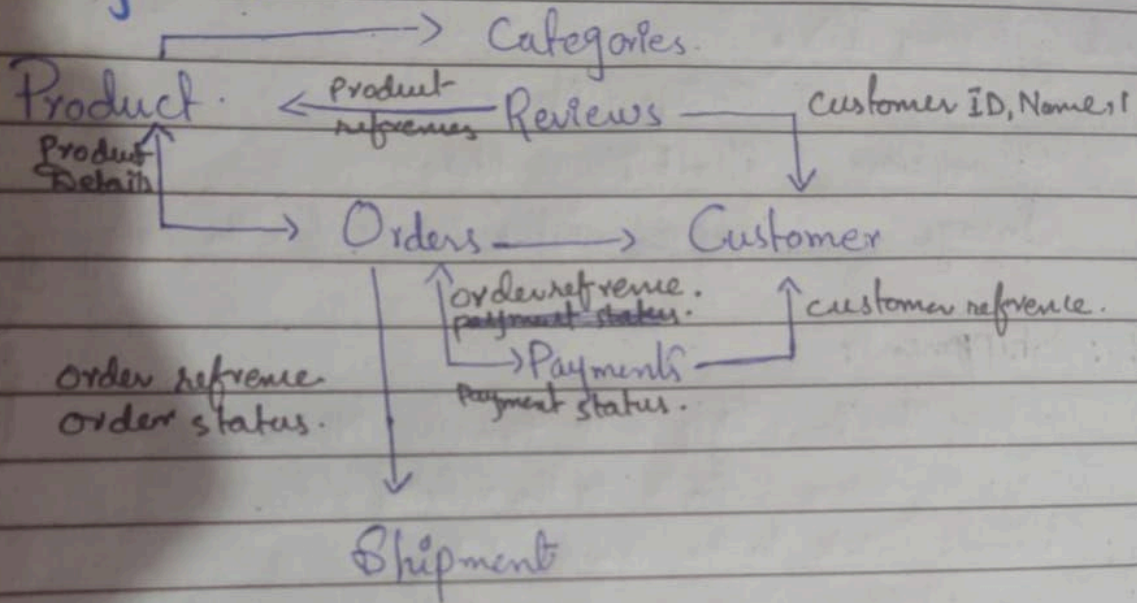 Categories.
Product.
product
refrences
Reviews
Customer ID, Name,
Product
Detail
Orders
Customer
order refrence.
payment status.
customer refrence.
Payments
Payment status.
order refrence
order status.
Shipment